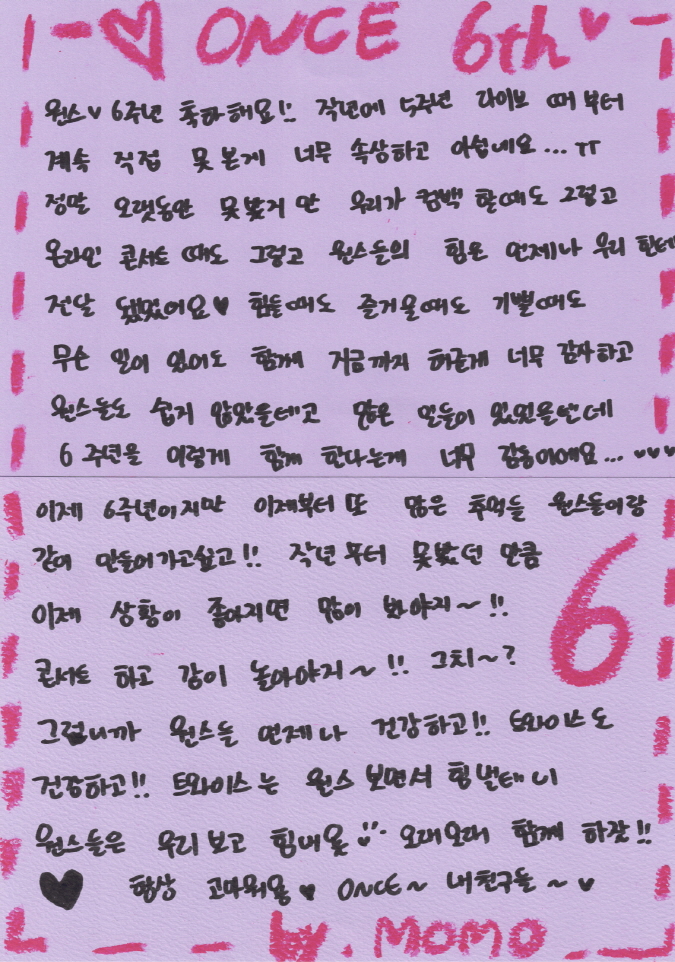 ♡ ONCE 6th ♡
원스♥ 6주년 축하해요!! 작년에 5주년 라이브 때부터
계속 직접 못 본게 너무 속상하고 아쉽네요... ㅠ
정말 오랫동안 못봤거 만 우리가 컴백 할때도 그렇고
온라인 콘서트 때도 그렇고 원스들의 힘은 언제나 우리 한테
전달 됐었어요♥ 힘들때도 즐거울때도 기쁠때도
무슨 일이 있어도 함께 지금까지 해준게 너무 감사하고
원스들도 쉽지 않았을테고 많은 일들이 있었을텐데
6주년을 이렇게 함께 한다는게 너무 감동이에요... ♥♥♥
이제 6주년이지만 이제부터 또 많은 추억들 원스들이랑
같이 만들어가고싶고!! 작년부터 못봤던 만큼
이제 상황이 좋아지면 많이 봐야지~!!
콘서트 하고 같이 놀아야지~!! 그치~?
6
그럼니까 원스들 언제나 건강하고!! 트와이스도
건강하고!! 트와이스는 원스 보면서 힘낼테니
원스들은 우리 보고 힘내욧 오래오래 함께 하잣!!
♥ 항상 고마워용 ♥ ONCE~ 내친구들 ~ ♥
by. MOMO